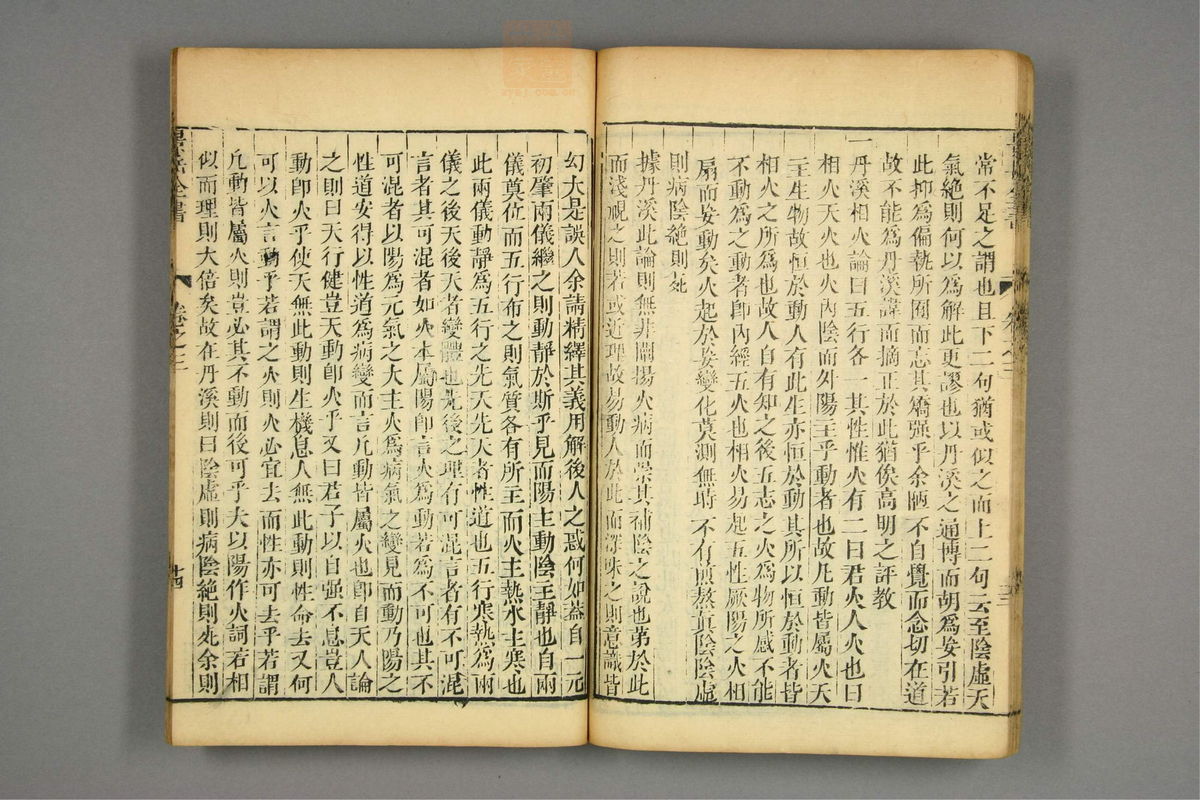 常不足之謂也且下二句猶或似之而上二句云至陰虛天
氣絕則何以為解此更謬也以丹溪之通博而胡為妄引若
此抑為偏執所囿而忘其矯强乎余陋不自覺而念切在道
故不能為丹溪諱而摘正於此猶俟高明之評教
一丹溪相火論曰五行各一其性惟火有二曰君火人火也曰
相火天火也火內陰而外陽主乎動者也故凡動皆屬火天
主生物故恒於動人有此生亦恒於動其所以恒於動者皆
相火之所為也故人自有知之後五志之火為物所感不能
不動為之動者即內經五火也相火易起五性厥陽之火相
扇而妄動矣火起於妄變化莫測無時不有煎熬真陰陰虛
則病陰絕則死
據丹溪此論則無非闡揚火病而崇其補陰之說也第於此
而淺視之則若或近理故易動人於此而深味之則意識皆
幻大是誤人余請精繹其義用解後人之惑何如蓋自一元
初肇兩儀繼之則動靜於斯乎見而陽主動陰主靜也自兩
儀奠位而五行布之則氣質各有所主而火主熱水主寒也
此兩儀動靜為五行之先天先天者性道也五行寒熱為兩
儀之後天後天者變體也先後之理有可混言者有不可混
言者其可混者如火本屬陽即言火為動若為不可也其不
可混者以陽為元氣之大主火為病氣之變見而動乃陽之
性道安得以性道為病變而言凡動皆屬火也即自天人論
之則曰天行健豈天動即火乎又曰君子以自强不息豈人
動即火乎使天無此動則生機息人無此動則性命去又何
可以火言動乎若謂之火則火必宜去而性亦可去乎若謂
凡動皆屬火則豈必其不動而後可乎夫以陽作火詞若相
似而理則大倍矣故在丹溪則曰陰虛則病陰絕則死余則
景岳全書
卷之三
廿四